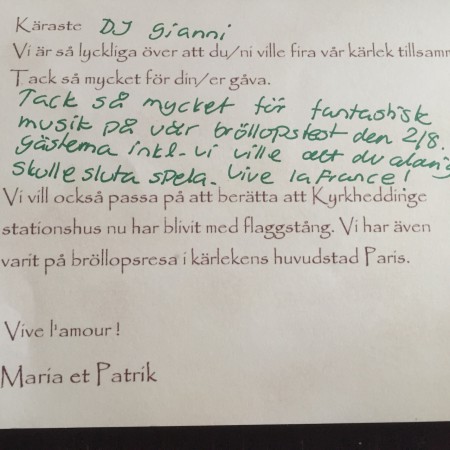 Käraste DJ Gianni
Vi är så lyckliga över att du/ni ville fira vår kärlek tillsamm
Tack så mycket för din/er gåva.
Tack så mycket för fantastisk
musik på vår bröllopsfest den 2/8.
Gästerna inkl. vi ville att du aldrig
skulle sluta spela. Vive la France!
Vi vill också passa på att berätta att Kyrkheddinge
stationshus nu har blivit med flaggstång. Vi har även
varit på bröllopsresa i kärlekens huvudstad Paris.
Vive l'amour!
Maria et Patrik